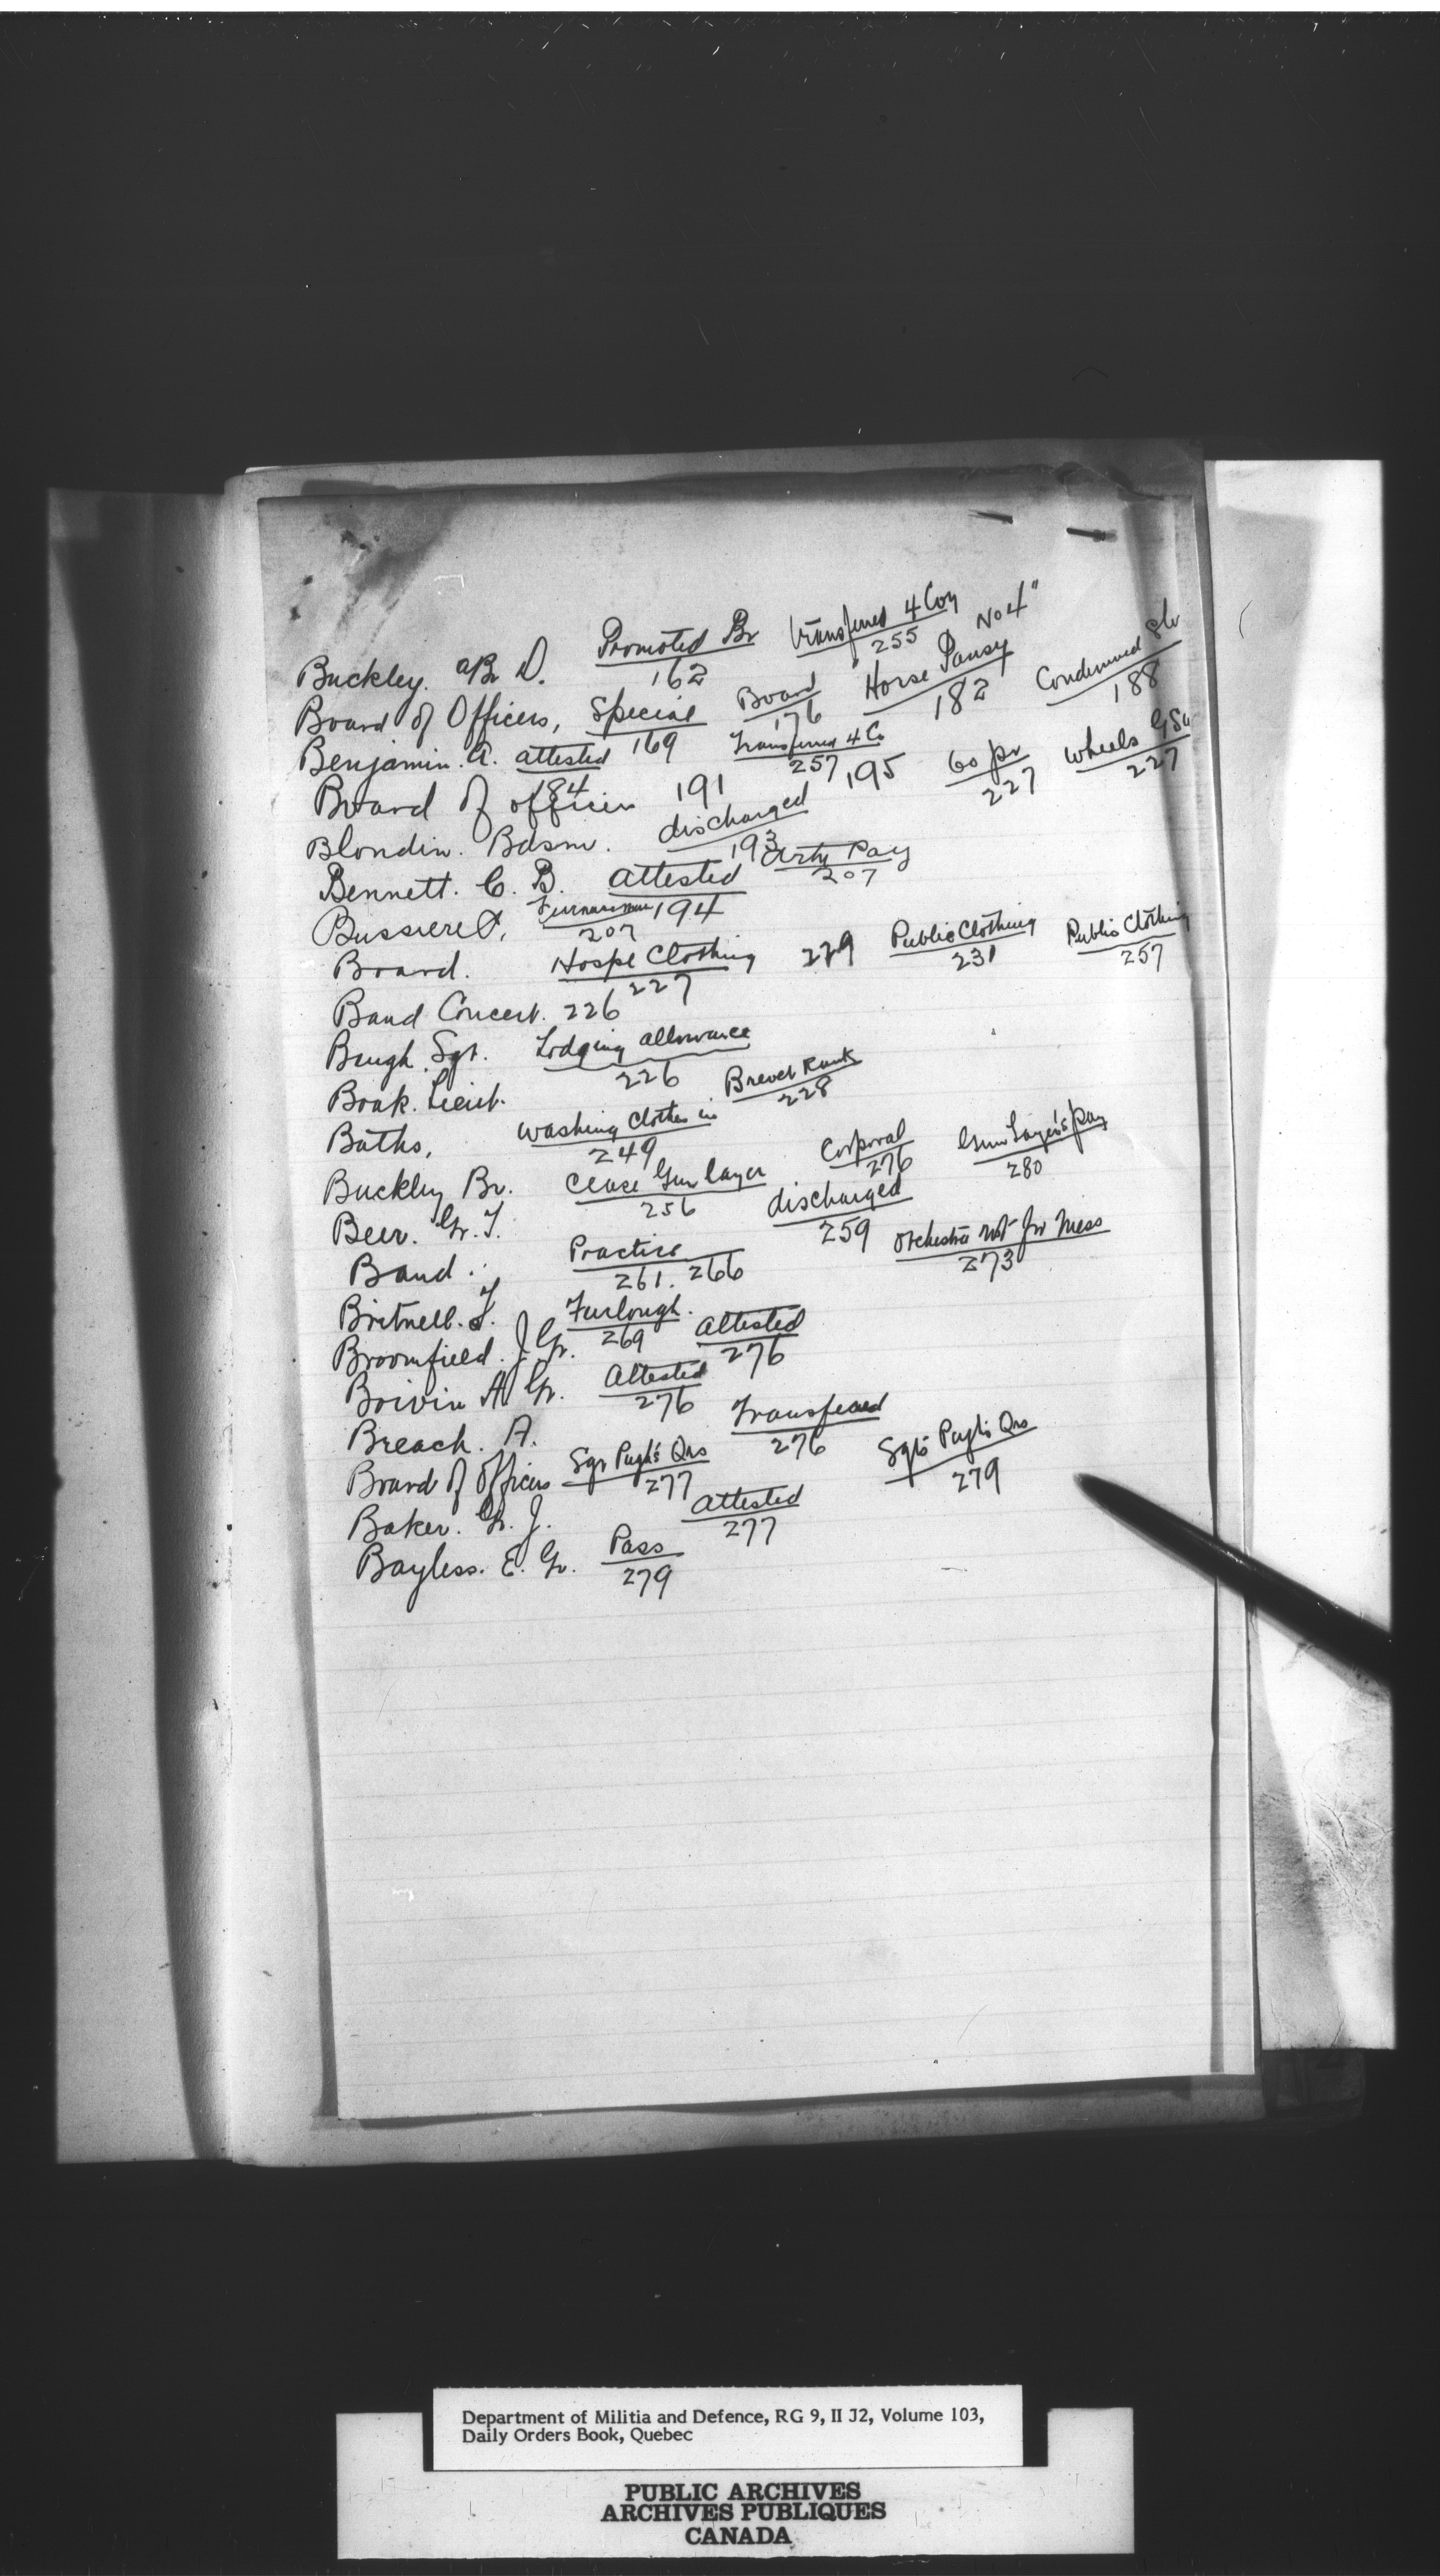 Buckley. a/Br D. Promoted Br 162 transferred 4 Coy 255
Board of Officers, Special 169 Board 176 "Horse Pansy No 4" 182 Condemned 188
Benjamin. A. attested 184 Transferred 4 Co 257
Board of officers 191 195 60 pr 227 Wheels G.S. 227
Blondin. Bdsm. discharged 193
Bennett. C. B. attested 194 Arty Pay 207
Bussiere, Furnaceman 207
Board. Hospl Clothing 227 229 Public Clothing 231 Public Clothing 257
Band Concert. 226
Baugh. Sgt. Lodging allowance 226
Boak. Lieut. Brevet Rank 228
Baths, Washing Clothes in 249
Buckley Br. Cease Gun layer 256 Corporal 276 Gun Layer's pay 280
Beer. Gr. T. discharged 259
Band. Practice 261. 266 Orchestra not for Mess 273
Britnell. T. Furlough. 269
Broomfield. J. Gr. Attested 276
Boivin A Gr. Attested 276
Breach. A. Transferred 276
Board of Officers Sgr Pugh's Qrs 277 Sgts Pugh's Qrs 279
Baker. Gr. J. attested 277
Bayless. E. Gr. Pass 279
Department of Militia and Defence, RG 9, II J2, Volume 103,
Daily Orders Book, Quebec
PUBLIC ARCHIVES
ARCHIVES PUBLIQUES
CANADA